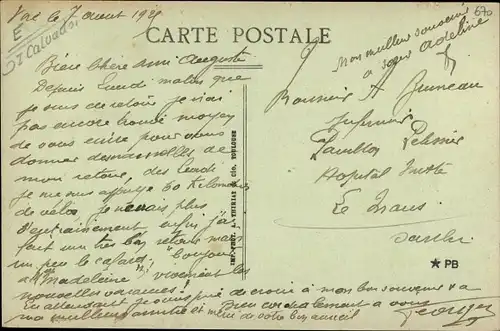 le 7 aout 192
E
St Calvados
670
CARTE POSTALE
Mon meilleur souvenir
à soeur Adeline
Bien chère ami Auguste
Depuis Lundi matin que
je suis de retour je n'ai
pas encore trouvé moyen
de vous écrire pour vous
donner des nouvelles de
mon retour, dès Lundi
je me suis appuyé 60 kilomètres
de vélo, je n'avais plus
d'entrainement enfin j'ai
fait un très bon retour mais
un peu le cafard, bonjour
à "Madeleine" vivement les
nouvelles vacances!
En attendant je vous prie de croire à mon bon souvenir & à
ma meilleure amitié et merci de votre bon accueil
Bien cordialement à vous
Georges
Monsieur A Juneau
Infirmier
Pavillon
Hopital
Le Mans
Sarthe
IMP. PHOT. A. THIRIAT & CIE, TOULOUSE
★ PB